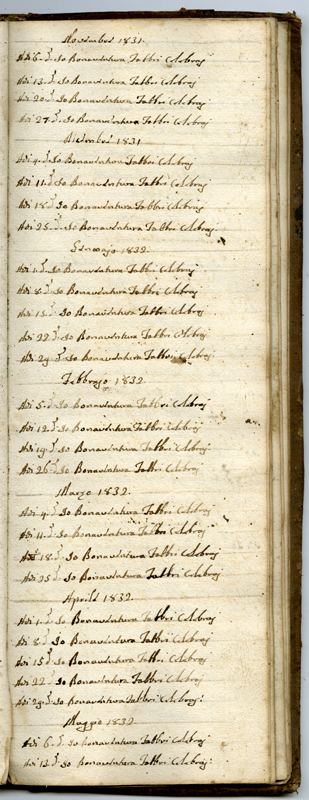 Novembre 1831.
Adi 6. d.º Io Bonaventura Fabbri Celebraj
Adi 13. d.º Io Bonaventura Fabbri Celebraj
Adi 20. d.º Io Bonaventura Fabbri Celebraj
Adi 27. d.º Io Bonaventura Fabbri Celebraj
Dicembre 1831
Adi 4. d.º Io Bonaventura Fabbri Celebraj
Adi 11. d.º Io Bonaventura Fabbri Celebraj
Adi 18. d.º Io Bonaventura Fabbri Celebraj
Adi 25. d.º Io Bonaventura Fabbri Celebraj
Gennajo 1832.
Adi 1. d.º Io Bonaventura Fabbri Celebraj
Adi 8. d.º Io Bonaventura Fabbri Celebraj
Adi 15. d.º Io Bonaventura Fabbri Celebraj
Adi 22. d.º Io Bonaventura Fabbri Celebraj
Adi 29. d.º Io Bonaventura Fabbri Celebraj
Febbrajo 1832.
Adi 5. d.º Io Bonaventura Fabbri Celebraj
Adi 12. d.º Io Bonaventura Fabbri Celebraj
Adi 19. d.º Io Bonaventura Fabbri Celebraj
Adi 26. d.º Io Bonaventura Fabbri Celebraj
Marzo 1832.
Adi 4. d.º Io Bonaventura Fabbri Celebraj
Adi 11. d.º Io Bonaventura Fabbri Celebraj
Adi 18. d.º Io Bonaventura Fabbri Celebraj
Adi 25. d.º Io Bonaventura Fabbri Celebraj
Aprile 1832.
Adi 1. d.º Io Bonaventura Fabbri Celebraj
Adi 8. d.º Io Bonaventura Fabbri Celebraj
Adi 15. d.º Io Bonaventura Fabbri Celebraj
Adi 22. d.º Io Bonaventura Fabbri Celebraj
Adi 29. d.º Io Bonaventura Fabbri Celebraj.
Maggio 1832
Adi 6. d.º Io Bonaventura Fabbri Celebraj
Adi 13. d.º Io Bonaventura Fabbri Celebraj.